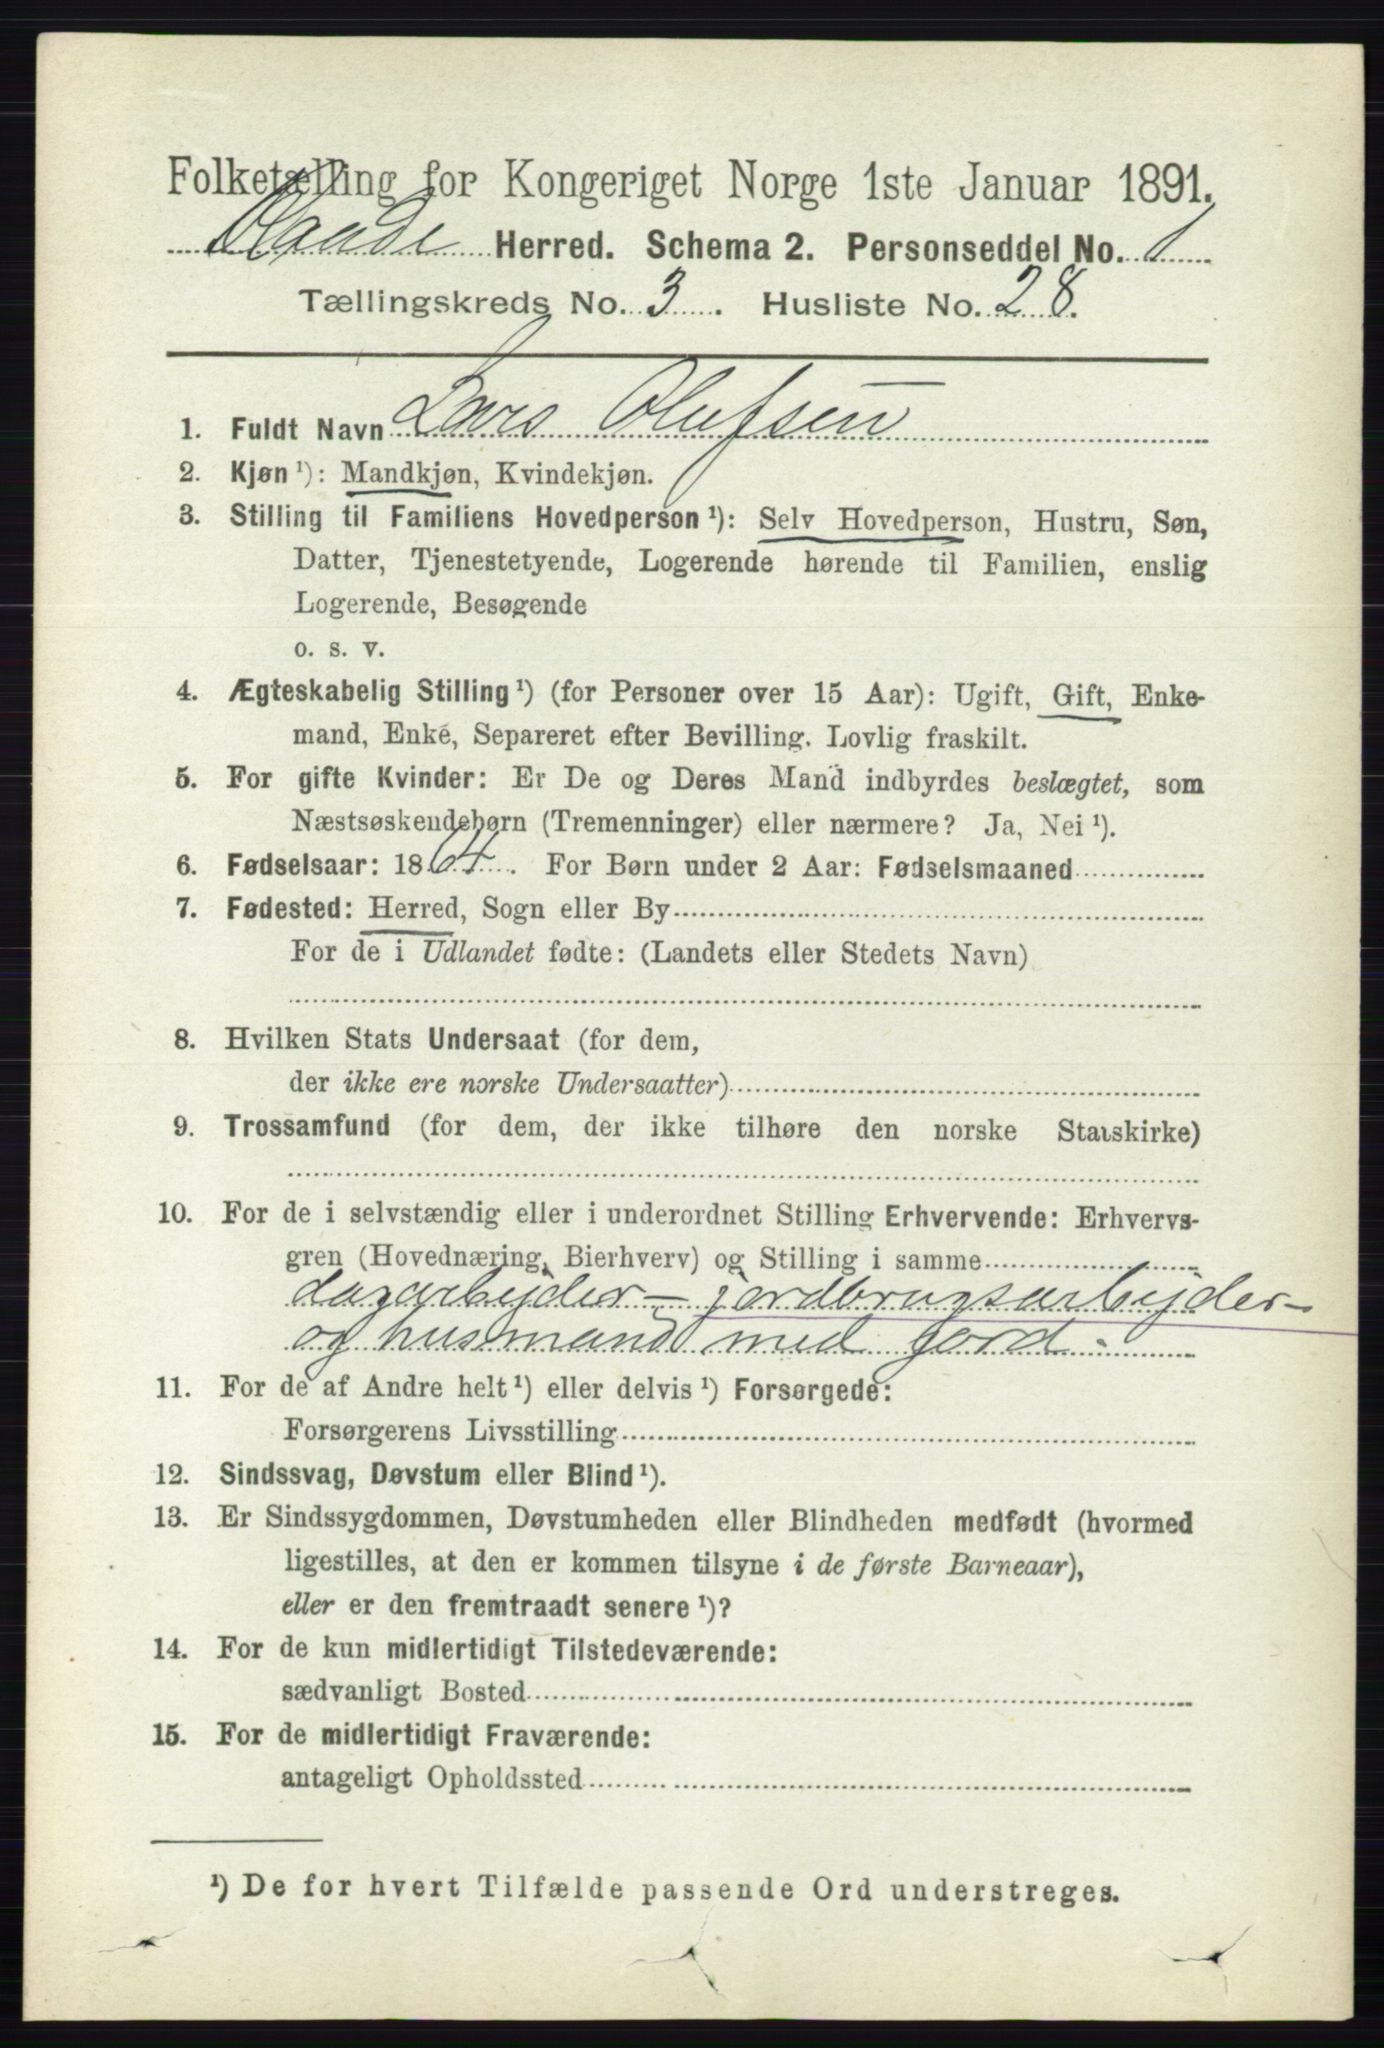 Folketælling for Kongeriget Norge 1ste Januar 1891.
Raade Herred. Schema 2. Personseddel No. 1
Tællingskreds No. 3. Husliste No. 28.
1. Fuldt Navn Lars Olufsen
2. Kjøn ¹): Mandkjøn, Kvindekjøn.
3. Stilling til Familiens Hovedperson ¹): Selv Hovedperson, Hustru, Søn,
Datter, Tjenestetyende, Logerende hørende til Familien, enslig
Logerende, Besøgende
o. s. v.
4. Ægteskabelig Stilling ¹) (for Personer over 15 Aar): Ugift, Gift, Enke-
mand, Enke, Separeret efter Bevilling. Lovlig fraskilt.
5. For gifte Kvinder: Er De og Deres Mand indbyrdes beslægtet, som
Næstsøskendebørn (Tremenninger) eller nærmere? Ja, Nei ¹).
6. Fødselsaar: 1864. For Børn under 2 Aar: Fødselsmaaned
7. Fødested: Herred, Sogn eller By
For de i Udlandet fødte: (Landets eller Stedets Navn)
8. Hvilken Stats Undersaat (for dem,
der ikke ere norske Undersaatter)
9. Trossamfund (for dem, der ikke tilhøre den norske Statskirke)
10. For de i selvstændig eller i underordnet Stilling Erhvervende: Erhvervs-
gren (Hovednæring, Bierhverv) og Stilling i samme
dagarbejder - jordbrugsarbejder -
og husmand med jord -
11. For de af Andre helt ¹) eller delvis ¹) Forsørgede:
Forsørgerens Livsstilling
12. Sindssvag, Døvstum eller Blind ¹).
13. Er Sindssygdommen, Døvstumheden eller Blindheden medfødt (hvormed
ligestilles, at den er kommen tilsyne i de første Barneaar),
eller er den fremtraadt senere ¹)?
14. For de kun midlertidigt Tilstedeværende:
sædvanligt Bosted
15. For de midlertidigt Fraværende:
antageligt Opholdssted
¹) De for hvert Tilfælde passende Ord understreges.